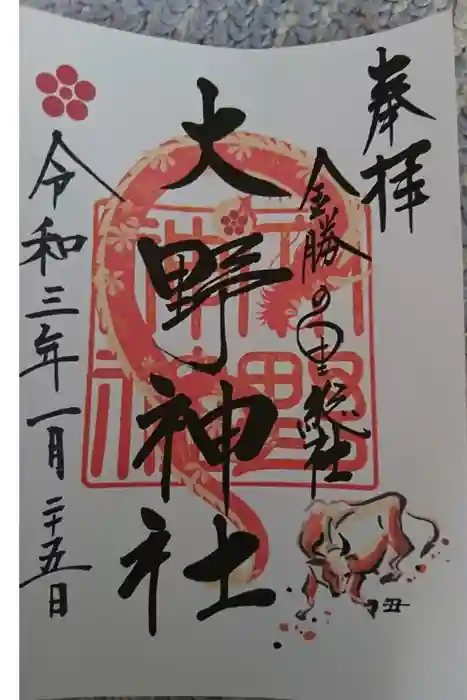 奉拝
金勝の里総社
大野神社
令和三年一月二十五日
丑
大野神社